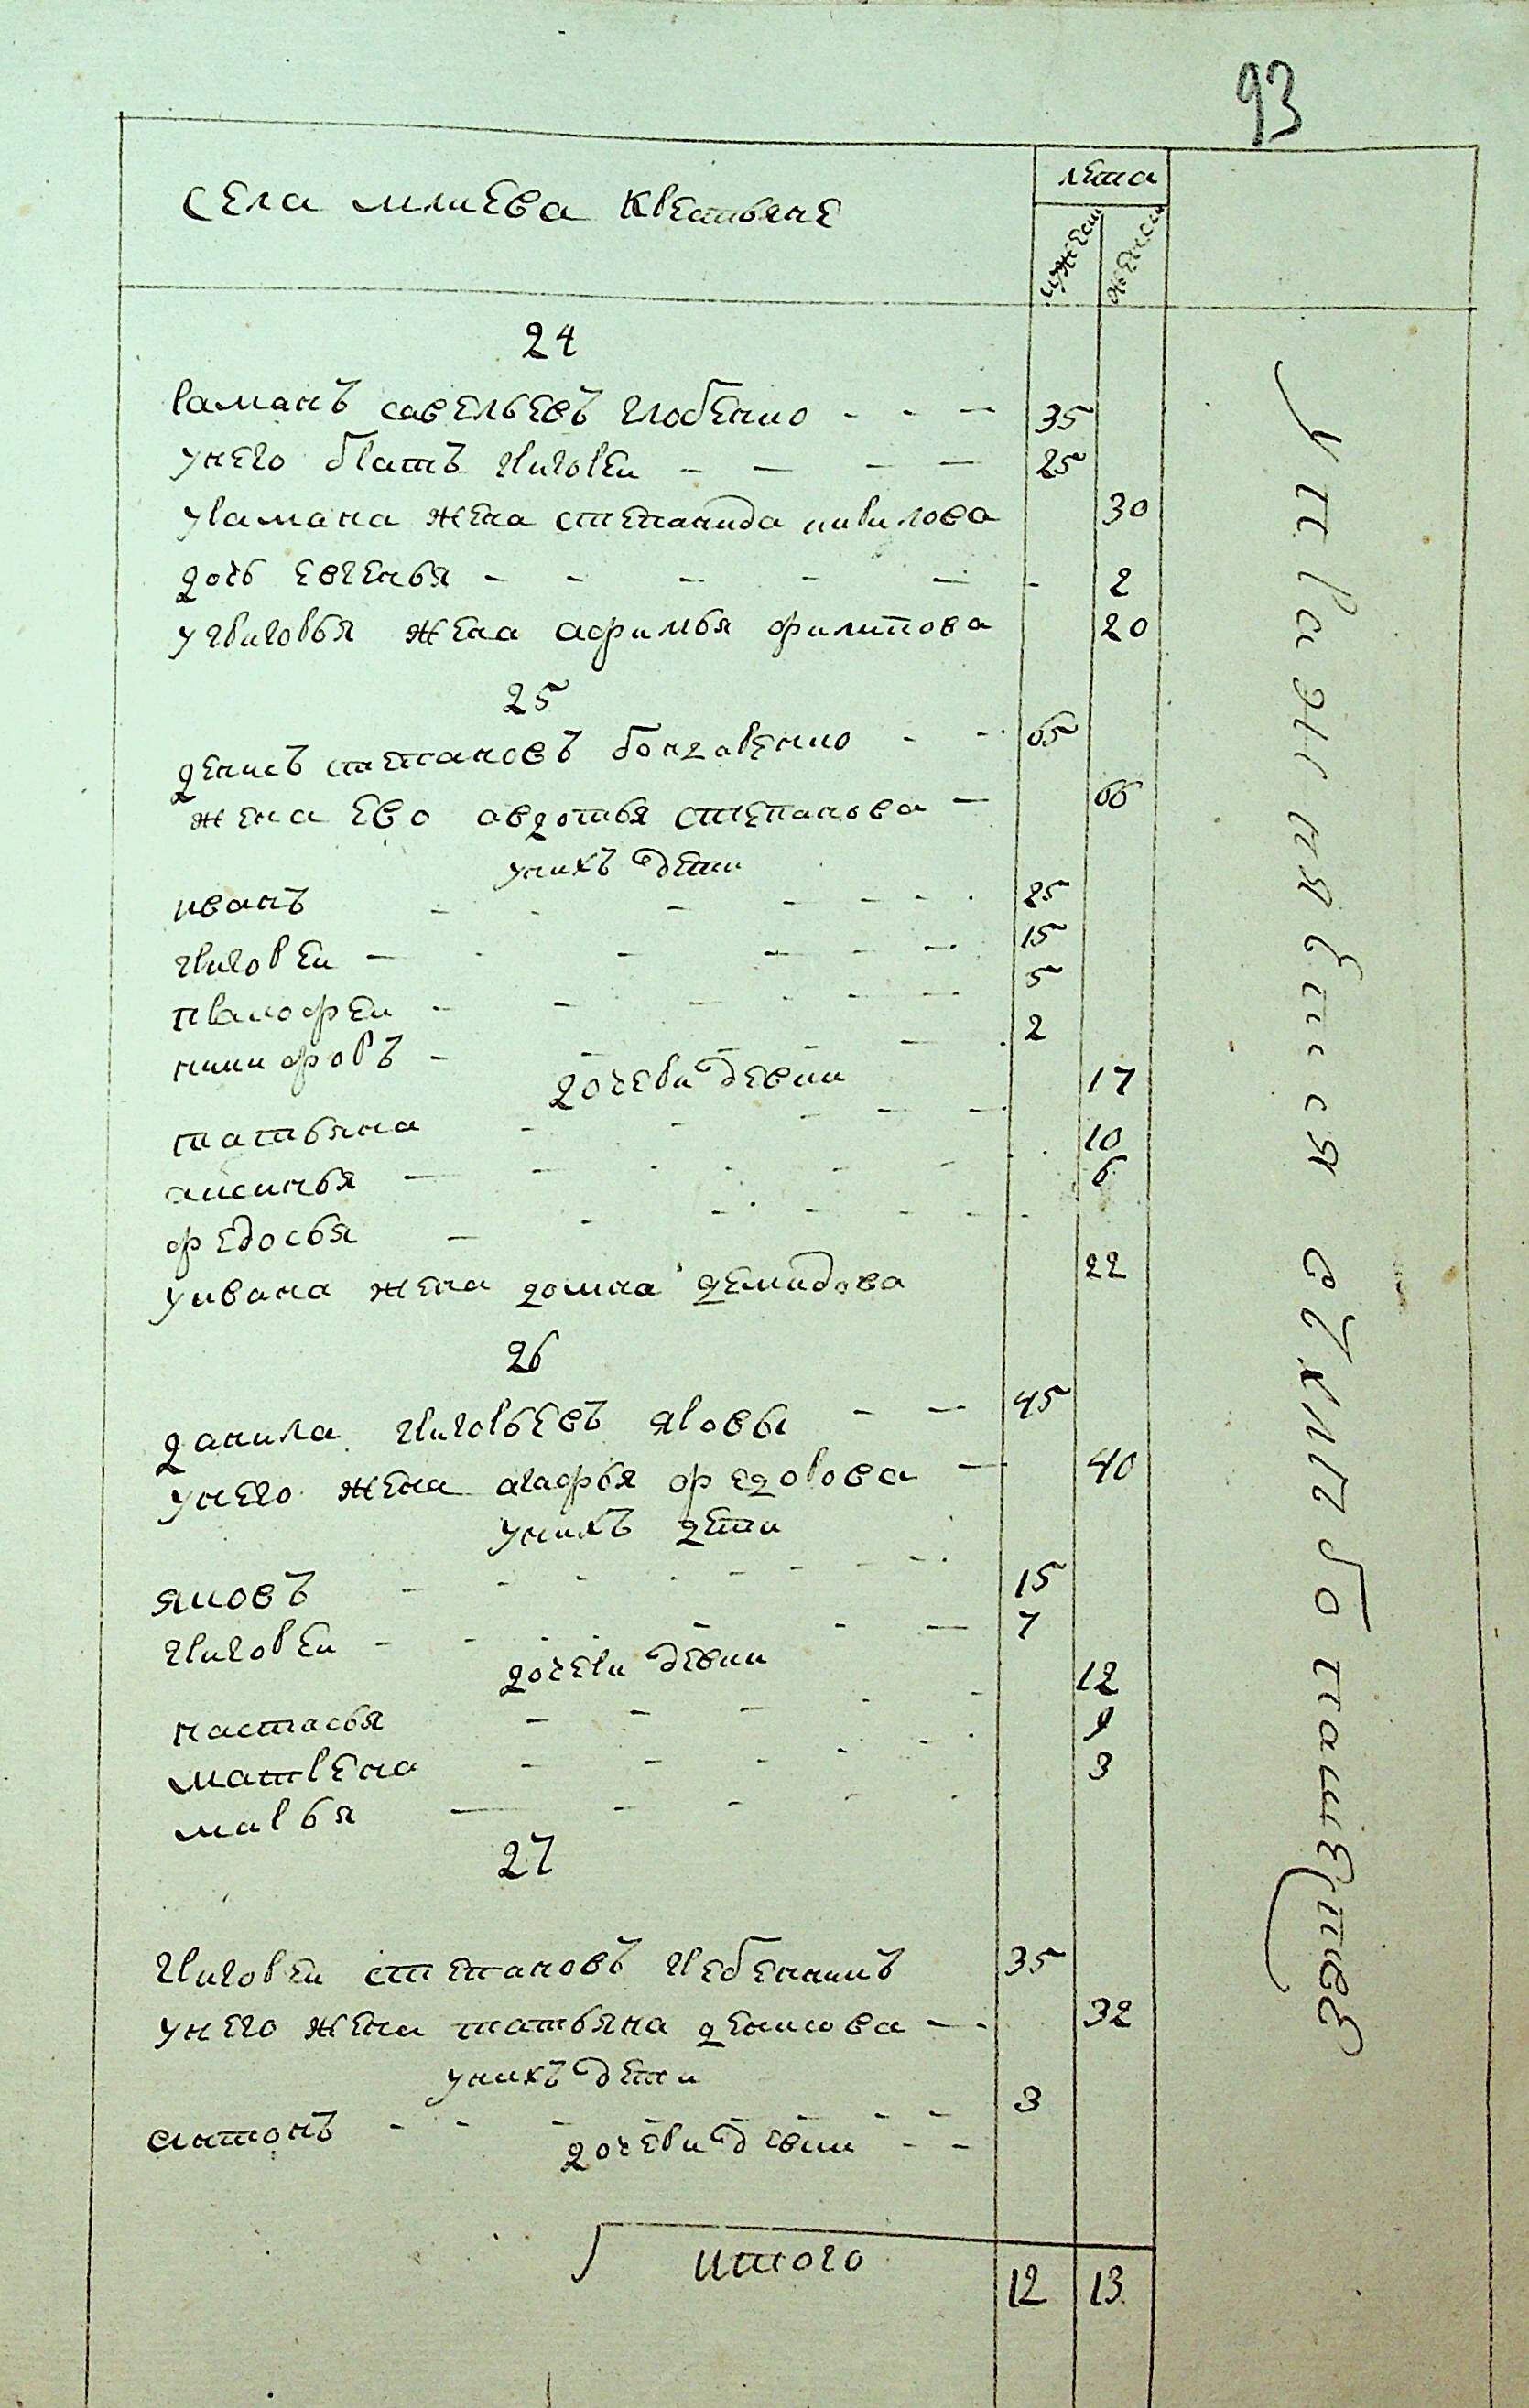 93
села млиева крестьяне
лета
мужеск
женск
24
раманъ савельевъ глобенко - - - 35
унего братъ григореи - - - - 25
урамана жена степанида кирилова 30
дочь евгенья - - - - - - 2
угригорья жена афимья филипова 20
25
денисъ степановъ бондаренко - - 65
жена ево авдотья степанова - 66
унихъ дети
иванъ - - - - - - - 25
григореи - - - - - - 15
пракофеи - - - - - - 5
никифоръ - - - - - 2
дочери девки
татьяна - - - - - 17
аксинья - - - - - - 10
федосья - - - - - - - 6
уивана жена домна демидова 22
26
данила григорьевъ яровы - - 45
унего жена агафья федорова - 40
унихъ дети
яковъ - - - - - - - - 15
григореи - - - - - - - 7
дочери девки
настасья - - - - - 12
матрена - - - - - - 9
марья - - - - - 3
27
григореи степановъ гребенникъ 35
унего жена татьяна денисова - - 32
унихъ дети
антонъ - - - - - - - 3
дочери девки - -
итого 12 13